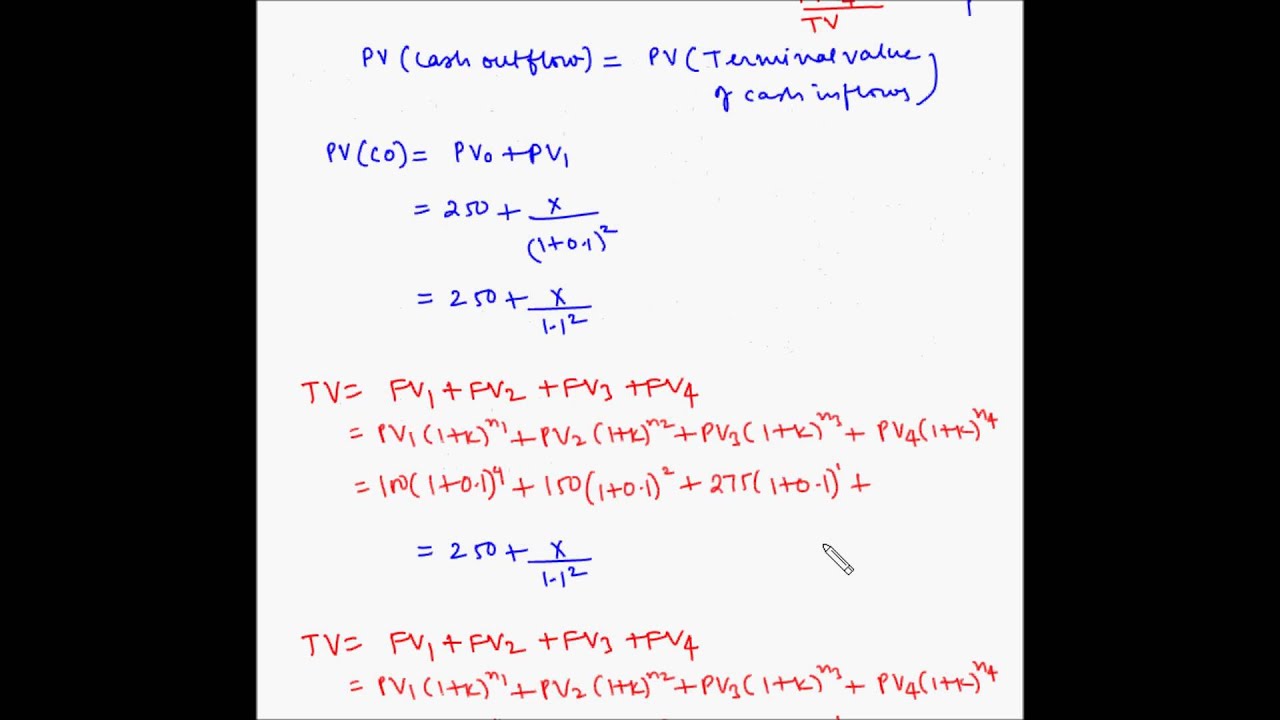 TV
PV (Cash outflow) = PV (Terminal value
of cash inflows)
PV(CO) = PV₀ + PV₁
= 250 + x/(1+0.1)²
= 250 + x/1.1²
TV = FV₁ + FV₂ + FV₃ + FV₄
= PV₁(1+k)^n1 + PV₂(1+k)^n2 + PV₃(1+k)^n3 + PV₄(1+k)^n4
= 100(1+0.1)⁴ + 150(1+0.1)² + 275(1+0.1)¹ +
= 250 + x/1.1²
TV = FV₁ + FV₂ + FV₃ + FV₄
= PV₁(1+k)^n1 + PV₂(1+k)^n2 + PV₃(1+k)^n3 + PV₄(1+k)^n4